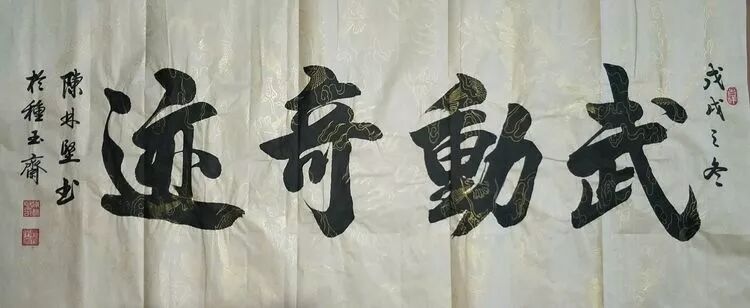 戊戌之冬
武動奇迹
陳林堅书
於種玉齋